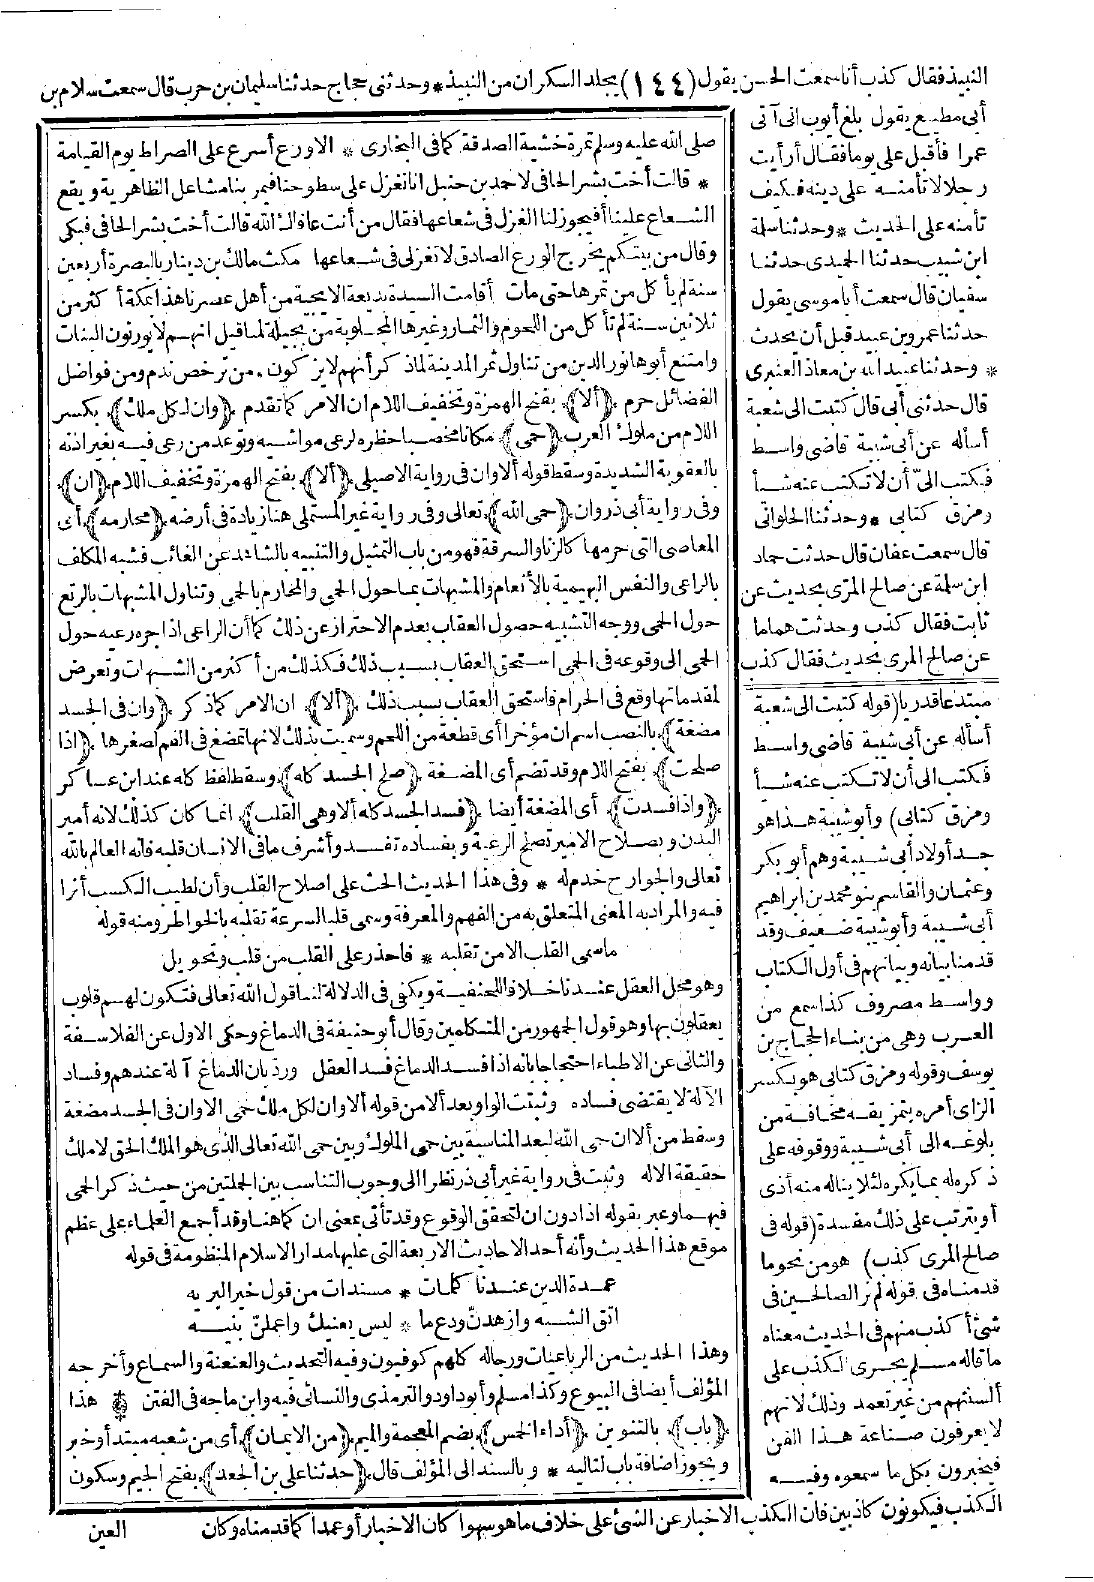 النبيذ فقال كذب أنا سمعت الحسن يقول (١٤٤) يجلد السكران من النبيذ * وحدثني حجاج حدثنا سليمان بن حرب قال سمعت سلام بن
أبي مطيع يقول بلغ أيوب اني آتي
عمرا فأقبل علي يوما فقال أرأيت
رجلا لا تأمنه على دينه فكيف
تأمنه على الحديث * وحدثنا سلمة
ابن شبيب حدثنا الحميدي حدثنا
سفيان قال سمعت أبا موسى يقول
حدثنا عمرو بن عبيد قبل أن يحدث
* وحدثنا عبيد الله بن معاذ العنبري
قال حدثني أبي قال كتبت الى شعبة
أسأله عن أبي شيبة قاضي واسط
فكتب اليّ أن لا تكتب عنه شيأ
ومزق كتابي * وحدثنا الحلواني
قال سمعت عفان قال حدثت حماد
ابن سلمة عن صالح المري بحديث عن
ثابت فقال كذب وحدثت هماما
عن صالح المري بحديث فقال كذب
مبتدعا قدريا (قوله كتبت الى شعبة
أسأله عن أبي شيبة قاضي واسط
فكتب الى أن لا تكتب عنه شيأ
ومزق كتابي) وأبو شيبة هذا هو
جد أولاد أبي شيبة وهم أبو بكر
وعثمان والقاسم بنو محمد بن ابراهيم
أبي شيبة وأبو شيبة ضعيف وقد
قدمنا بيانه وبيانهم في أول الكتاب
وواسط مصروف كذا سمع من
العرب وهي من بناء الحجاج بن
يوسف وقوله ومزق كتابي هو بكسر
الزاي أمره بتمزيقه مخافة من
بلوغه الى أبي شيبة ووقوفه على
ذكره له بما يكره لئلا يناله منه أذى
أو يترتب على ذلك مفسدة (قوله في
صالح المري كذب) هو من نحو ما
قدمناه في قوله لم نر الصالحين في
شئ أكذب منهم في الحديث معناه
ما قاله مسلم يجرى الكذب على
ألسنتهم من غير تعمد وذلك لانهم
لا يعرفون صناعة هذا الفن
فيخبرون بكل ما سمعوه وفيه
الكذب فيكونون كاذبين فان الكذب الاخبار عن الشئ على خلاف ما هو سهوا كان الاخبار أو عمدا كما قدمناه وكان
صلى الله عليه وسلم تمرة خشية الصدقة كما في البخاري * الاورع أسرع على الصراط يوم القيامة
* قالت أخت بشر الحافي لاحمد بن حنبل انا نغزل على سطوحنا فيمر بنا مشاعل الظاهرية ويقع
الشعاع علينا أفيجوز لنا الغزل في شعاعها فقال من أنت عافاك الله قالت أخت بشر الحافي فبكى
وقال من بيتكم يخرج الورع الصادق لا تغزلي في شعاعها مكث مالك بن دينار بالبصرة أربعين
سنة لم يأكل من تمرها حتى مات أقامت السيدة بديعة الايجية من أهل عصرنا هذا بمكة أكثر من
ثلاثين سنة لم تأكل من اللحوم والثمار وغيرها المجلوبة من بجيلة لما قيل انهم لا يورثون البنات
وامتنع أبوها نور الدين من تناول ثمر المدينة لما ذكر أنهم لا يزكون. من يرخص ندم ومن فواضل
الفضائل حرم ﴿ألا﴾ بفتح الهمزة وتخفيف اللام ان الامر كما تقدم ﴿وان لكل ملك﴾ بكسر
اللام من ملوك العرب ﴿حمى﴾ مكانا مخصبا حظره لرعى مواشيه وتوعد من رعى فيه بغير اذنه
بالعقوبة الشديدة وسقط قوله ألا وان في رواية الاصيلي ﴿ألا﴾ بفتح الهمزة وتخفيف اللام ﴿ان﴾
وفي رواية أبي ذر وان ﴿حمى الله﴾ تعالى وفي رواية غير المستملي هنا زيادة في أرضه ﴿محارمه﴾ أي
المعاصي التي حرمها كالزنا والسرقة فهو من باب التمثيل والتشبيه بالشاهد عن الغائب فشبه المكلف
بالراعي والنفس البهيمية بالأنعام والمشبهات بما حول الحمى والمحارم بالحمى وتناول المشبهات بالرتع
حول الحمى ووجه التشبيه حصول العقاب بعدم الاحتراز عن ذلك كما أن الراعي اذا جره رعيه حول
الحمى الى وقوعه في الحمى استحق العقاب بسبب ذلك فكذلك من أكثر من الشبهات وتعرض
لمقدماتها وقع في الحرام فاستحق العقاب بسبب ذلك ﴿ألا﴾ ان الامر كما ذكر ﴿وان في الجسد
مضغة﴾ بالنصب اسم ان مؤخرا أي قطعة من اللحم وسميت بذلك لانها تمضغ في الفم لصغرها ﴿اذا
صلحت﴾ بفتح اللام وقد تضم أي المضغة ﴿صلح الجسد كله﴾ وسقط لفظ كله عند ابن عساكر
﴿واذا فسدت﴾ أي المضغة أيضا ﴿فسد الجسد كله ألا وهي القلب﴾ انما كان كذلك لانه أمير
البدن وبصلاح الامير تصلح الرعية وبفساده تفسد وأشرف ما في الانسان قلبه فانه العالم بالله
تعالى والجوارح خدم له * وفي هذا الحديث الحث على اصلاح القلب وأن لطيب الكسب أثرا
فيه والمراد به المعنى المتعلق به من الفهم والمعرفة وسمى قلبا لسرعة تقلبه بالخواطر ومنه قوله
ما سمى القلب الا من تقلبه * فاحذر على القلب من قلب وتحويل
وهو محل العقل عندنا خلافا للحنفية ويكفي في الدلالة لنا قول الله تعالى فتكون لهم قلوب
يعقلون بها وهو قول الجمهور من المتكلمين وقال أبو حنيفة في الدماغ وحكى الاول عن الفلاسفة
والثاني عن الاطباء احتجاجا بأنه اذا فسد الدماغ فسد العقل ورد بان الدماغ آلة عندهم وفساد
الآلة لا يقتضى فساده وثبتت الواو بعد ألا من قوله ألا وان لكل ملك حمى الا وان في الجسد مضغة
وسقط من ألا ان حمى الله لبعد المناسبة بين حمى الملوك وبين حمى الله تعالى الذي هو الملك الحق لا ملك
حقيقة الا له وثبتت في رواية غير أبي ذر نظرا الى وجوب التناسب بين الجملتين من حيث ذكر الحمى
فيهما وعبر بقوله اذا دون ان لتحقق الوقوع وقد تأتي بمعنى ان كما هنا وقد أجمع العلماء على عظم
موقع هذا الحديث وأنه أحد الاحاديث الاربعة التي عليها مدار الاسلام المنظومة في قوله
عمدة الدين عندنا كلمات * مسندات من قول خير البريه
اتق الشبه وازهدن ودع ما * ليس يعنيك واعملنّ بنيـه
وهذا الحديث من الرباعيات ورجاله كلهم كوفيون وفيه التحديث والعنعنة والسماع وأخرجه
المؤلف أيضا في البيوع وكذا مسلم وأبو داود والترمذي والنسائي فيه وابن ماجه في الفتن * هذا
﴿باب﴾ بالتنوين ﴿أداء الخمس﴾ بضم المعجمة والميم ﴿من الايمان﴾ أي من شعبه مبتدأ وخبر
ويجوز اضافة باب لتاليه * وبالسند الى المؤلف قال ﴿حدثنا علي بن الجعد﴾ بفتح الجيم وسكون
العين